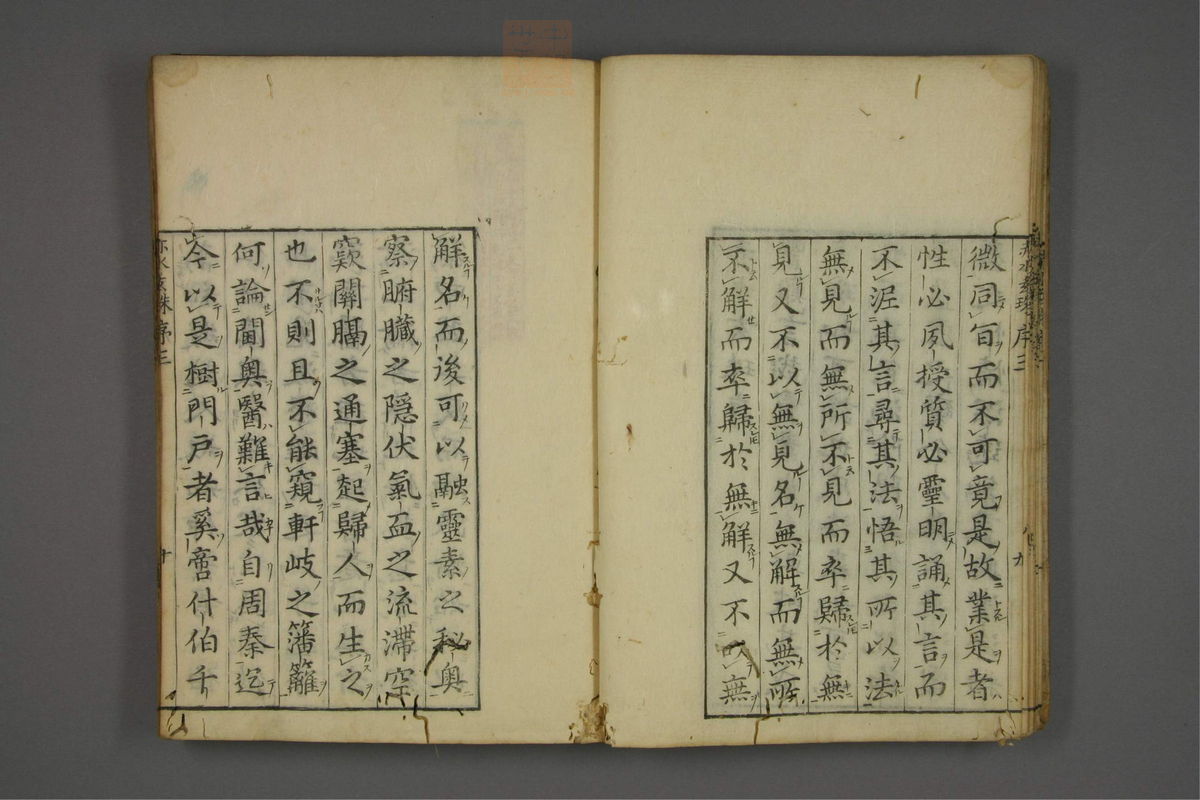 微同旨而不可竟是故業是者
性必夙授質必靈明誦其言而
不泥其言尋其法悟其所以法
無見而無所不見而卒歸於無
見又不以無見名無解而無所
不解而卒歸於無解又不以無
解名而後可以融靈素之秘奥
察腑臟之隠伏氣血之流滯窾
窾關膈之通塞起歸人而生之
也不則且不能窺軒岐之籓籬
何論閫奥醫難言哉自周秦迄
今以是樹門戸者奚啻什伯千
赤水玄珠 序三
九
十